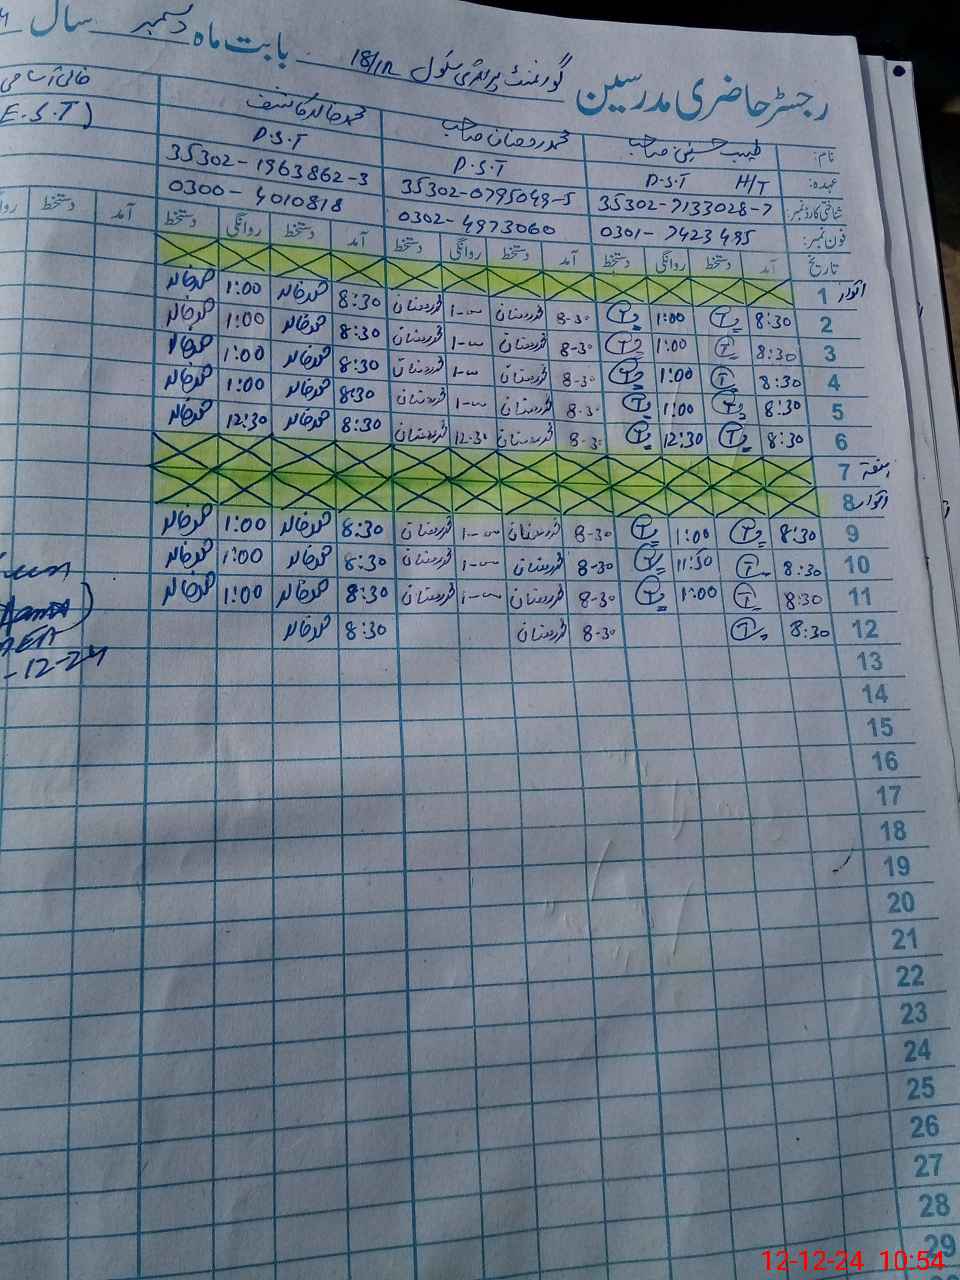 رجسٹر حاضری مدرسین گورنمنٹ پرائمری سکول 18/1R بابت ماہ دسمبر سال
نام: طیب حسین صاحب محمد رمضان صاحب محمد خالد کاشف خالی آسامی
عہدہ: P.S.T H/T P.S.T P.S.T (E.S.T)
شناختی کارڈ نمبر: 35302-7133028-7 35302-0795049-5 35302-1963862-3
فون نمبر: 0301-7423495 0302-4973060 0300-4010818
تاریخ آمد دستخط روانگی دستخط آمد دستخط روانگی دستخط آمد دستخط روانگی دستخط آمد دستخط
1 اتوار
2 8:30 1:00 8-30 محمد رمضان 1-00 محمد رمضان 8:30 محمد خالد 1:00 محمد خالد
3 8:30 1:00 8-30 محمد رمضان 1-00 محمد رمضان 8:30 محمد خالد 1:00 محمد خالد
4 8:30 1:00 8-30 محمد رمضان 1-00 محمد رمضان 8:30 محمد خالد 1:00 محمد خالد
5 8:30 1:00 8-30 محمد رمضان 1-00 محمد رمضان 8:30 محمد خالد 1:00 محمد خالد
6 8:30 12:30 8-30 محمد رمضان 12-30 محمد رمضان 8:30 محمد خالد 12:30 محمد خالد
7 ہفتہ
8 اتوار
9 8:30 1:00 8-30 محمد رمضان 1-00 محمد رمضان 8:30 محمد خالد 1:00 محمد خالد
10 8:30 11:30 8-30 محمد رمضان 1-00 محمد رمضان 8:30 محمد خالد 1:00 محمد خالد
11 8:30 1:00 8-30 محمد رمضان 1-00 محمد رمضان 8:30 محمد خالد 1:00 محمد خالد
12 8:30 8-30 محمد رمضان 8:30 محمد خالد
-12-24
13
14
15
16
17
18
19
20
21
22
23
24
25
26
27
28
29
12-12-24 10:54